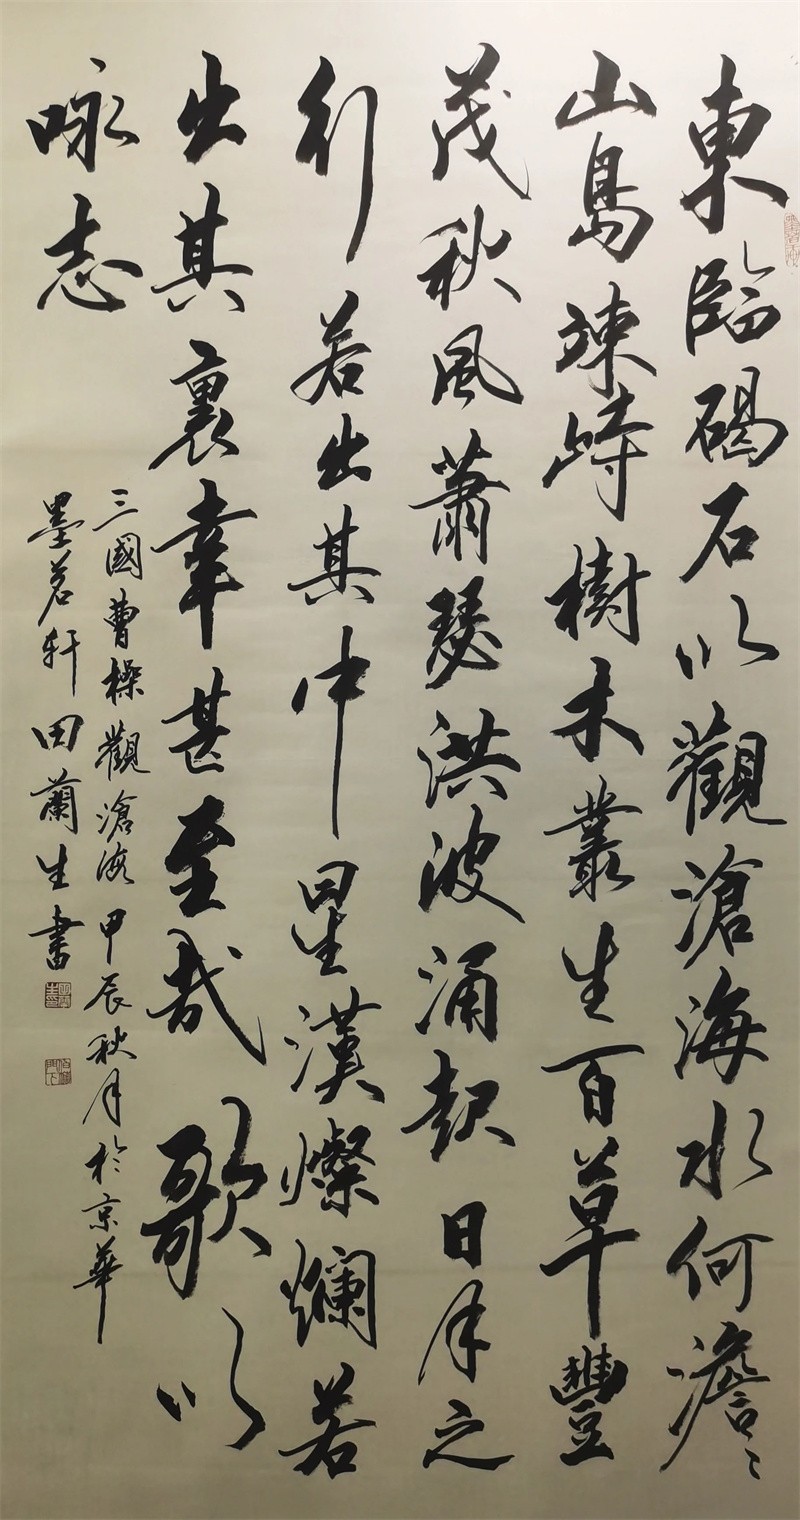 東臨碣石以觀滄海水何澹〻
山島竦峙樹木叢生百草豐
茂秋風蕭瑟洪波涌起日月之
行若出其中星漢燦爛若
出其裏幸甚至哉歌以
咏志
三國曹操觀滄海甲辰秋月於京華
墨茗轩田蘭生書